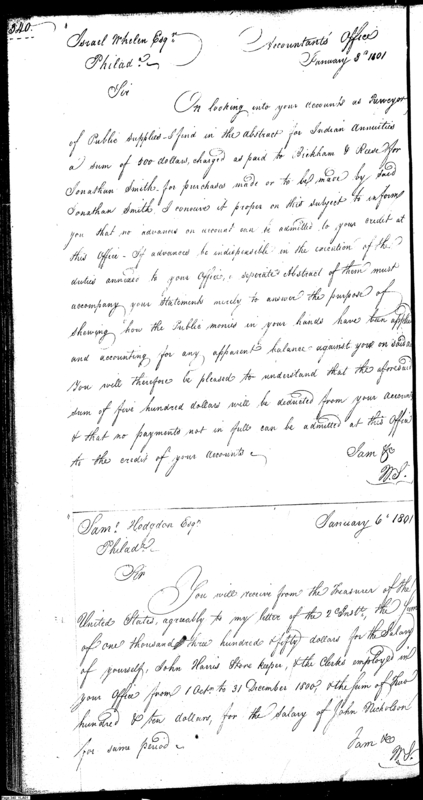 340.
Israel Whelen Esqr
Philada
Accountants Office
January 3d 1801
Sir
On looking into your accounts as Purveyor
of Public Supplies I find in the Abstract for Indian Annuities
a sum of 500 dollars, charged as paid to Bickham & Reese for
Jonathan Smith for purchases made or to be made by said
Jonathan Smith. I conceive it proper on this subject to inform
you that no advances on account can be admitted to your credit at
this Office - If advances be indispensible in the execution of the
duties annexed to your Office, a seperate Abstract of them must
accompany your Statements merely to answer the purpose of
shewing how the Public monies in your hands have been
and accounting for any apparent balance against you on said
You will therefore be pleased to understand that the aforesaid
sum of five hundred dollars will be deducted from your Account
& that no payments not in full can be admitted at this Office
to the credit of your accounts
I am &c
W.S.
Saml Hodgdon Esqr
Philada
January 6th 1801
Sir
You will receive from the Treasurer of the
United States, agreeably to my letter of the 2d Inst, the sum
of one thousand three hundred & fifty dollars for the Salary
of yourself, John Harris Store keeper, & the Clerks employed in
your Office from 1 Octr to 31 December 1800, & the sum of two
hundred & ten dollars, for the Salary of John Nicholson
for same period
I am &c
W.S.